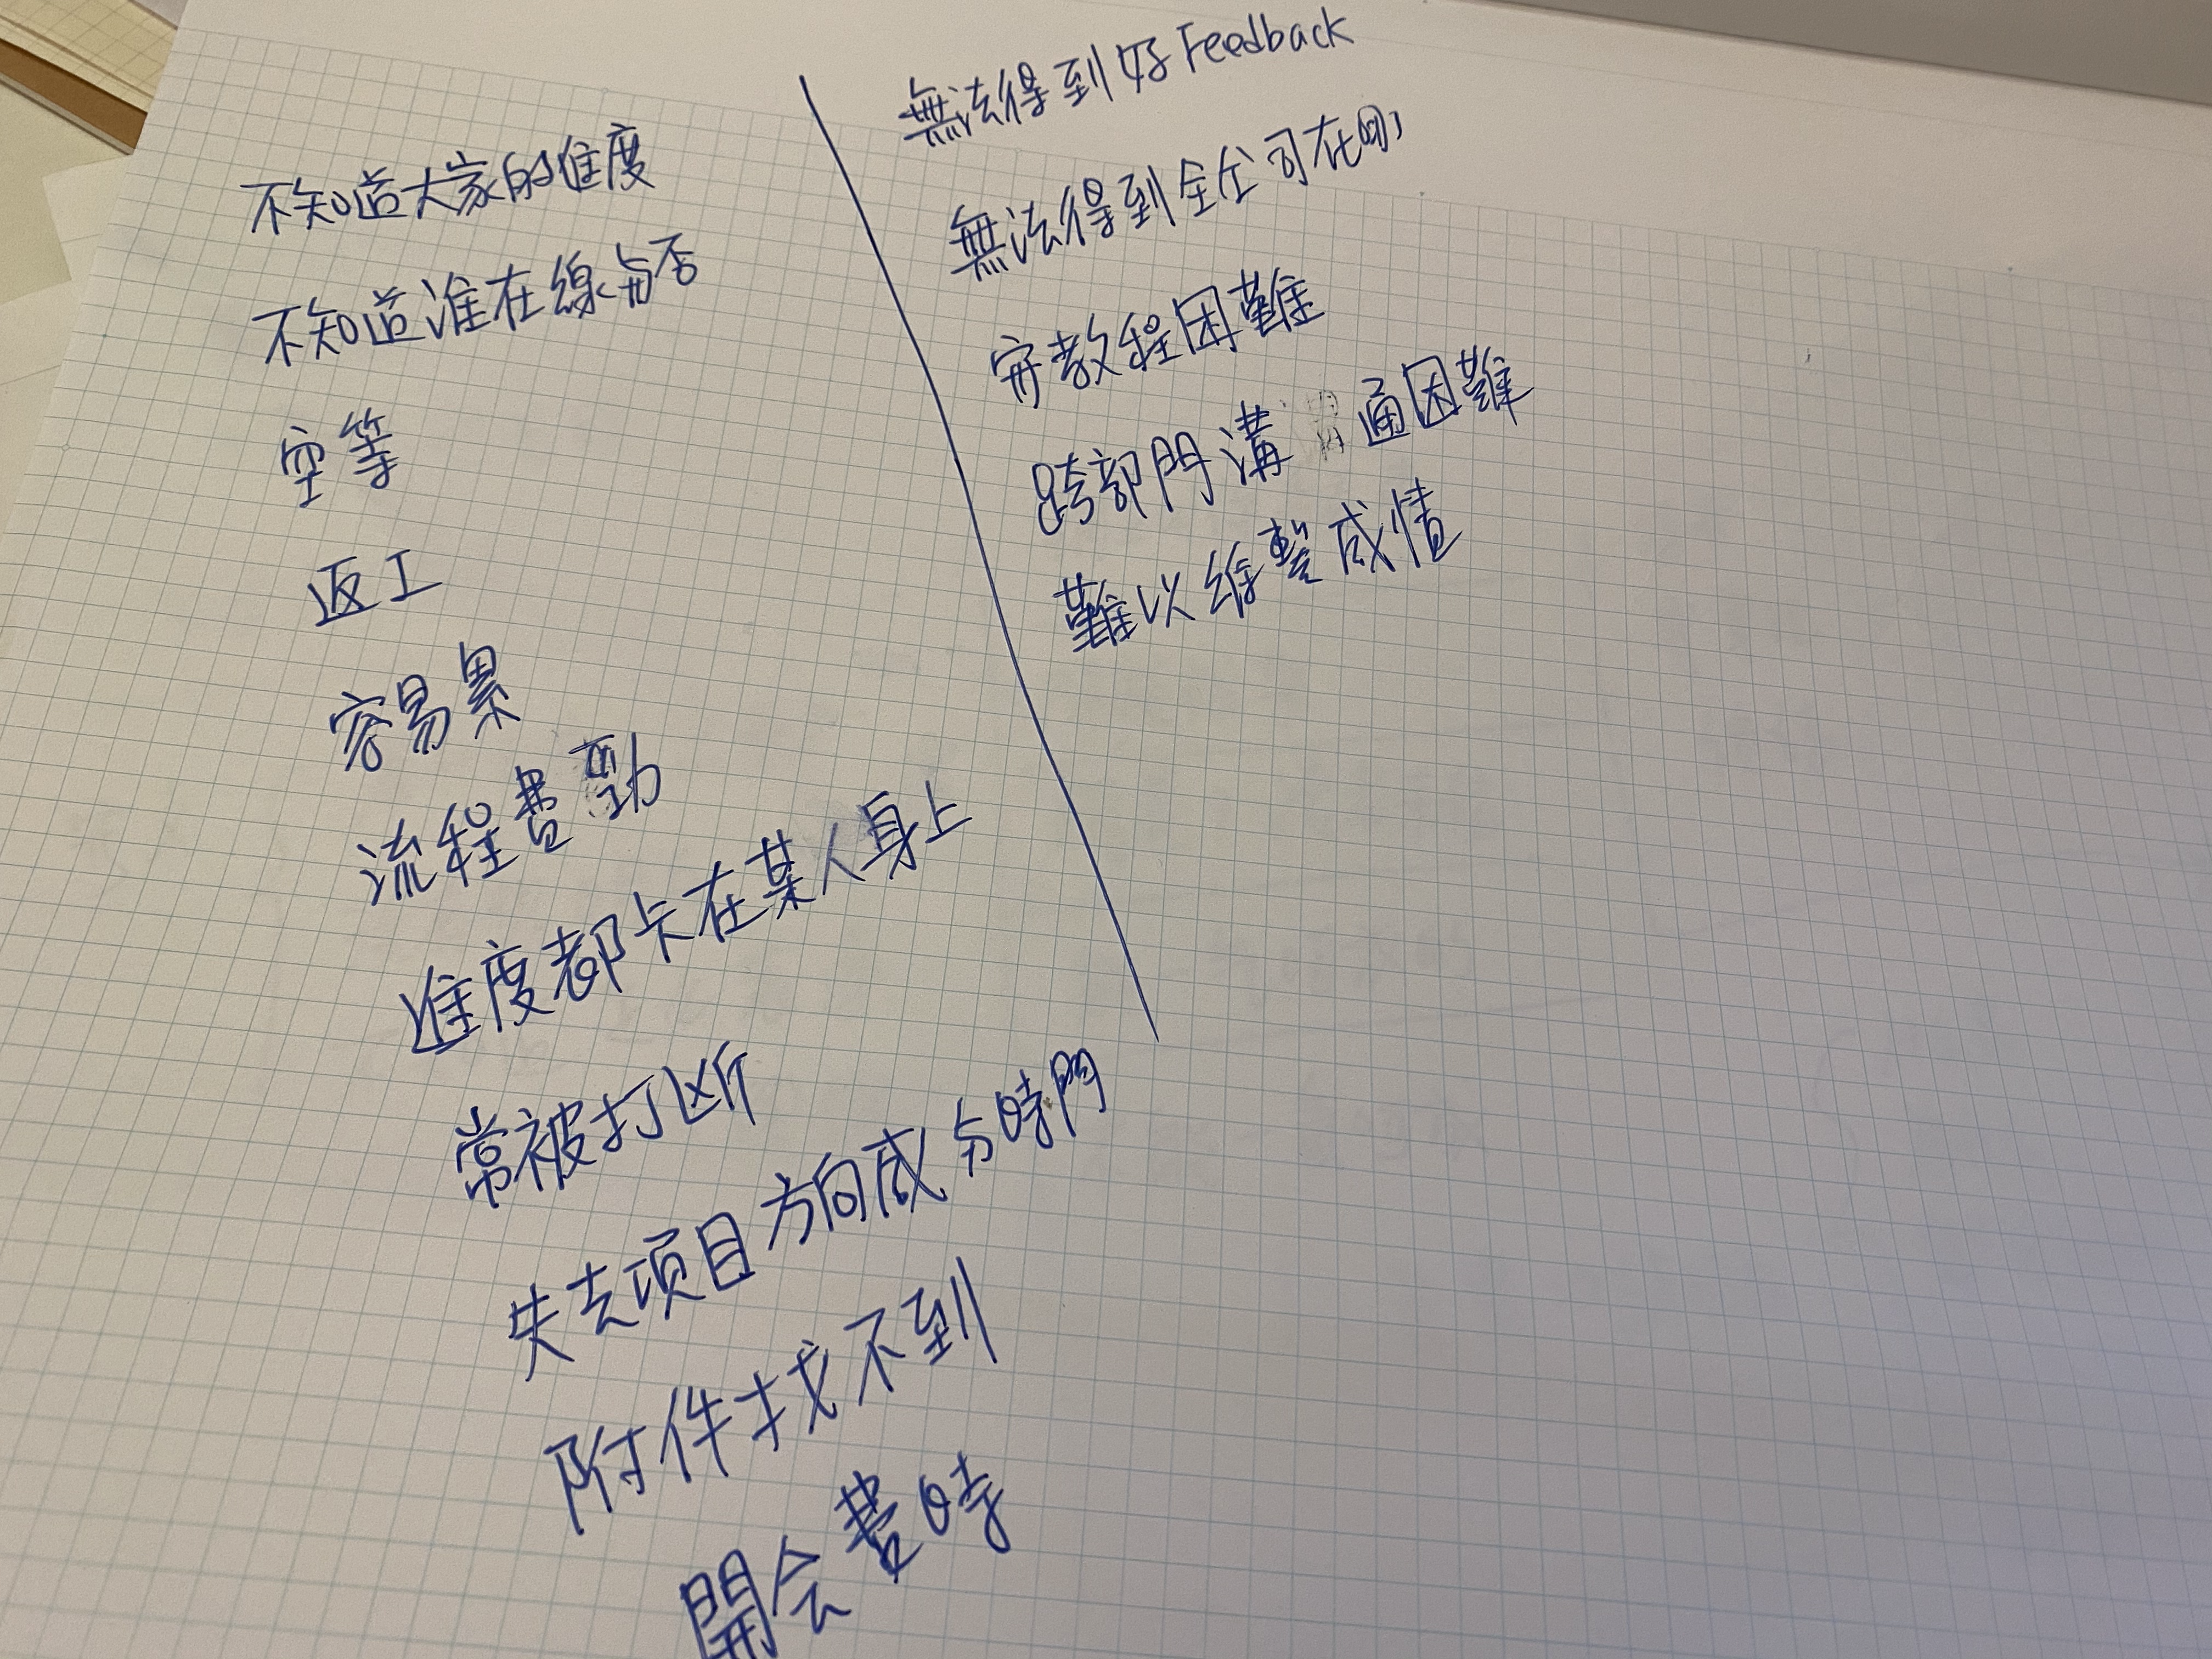 不知道大家的進度
不知道谁在線与否
空等
返工
容易累
流程費勁
進度都卡在某人身上
常被打断
失去項目方向感与時間
附件找不到
開会費時
無法得到好Feedback
無法得到全公司在
教程困難
跨部門溝通困難
難以維繫感情